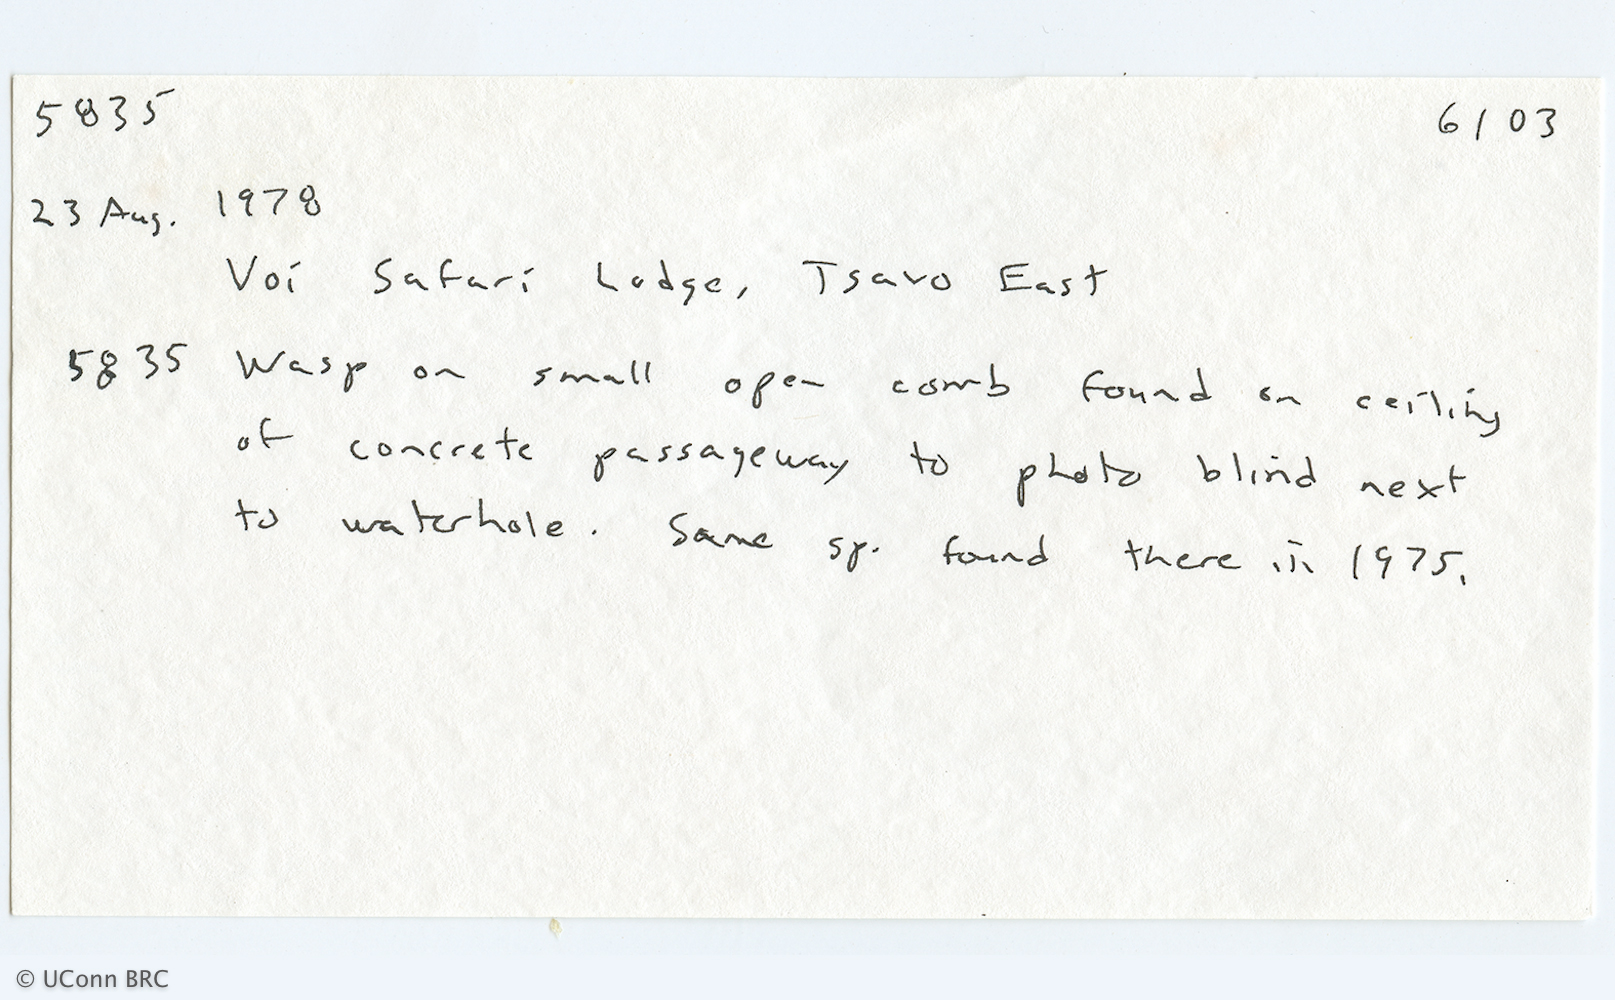 5835 6103
23 Aug. 1978
Voi Safari Lodge, Tsavo East
5835 Wasp on small open comb found on ceiling
of concrete passageway to photo blind next
to waterhole. Same sp. found there in 1975.
© UConn BRC